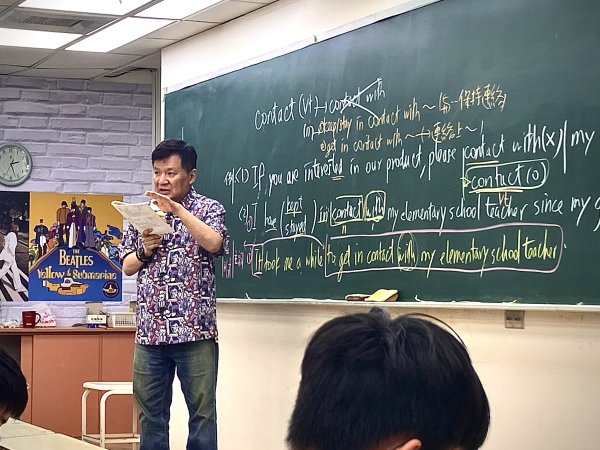 contact (vt) → contact with
(n) → keep/stay in contact with ~ 與…保持連絡
→ get in contact with ~ → 連絡上~
(1) If you are interested in our product, please contact with (x) my
contact (o)
vt
(2) I have kept stayed in contact with my elementary school teacher since my g
n
It took me a while to get in contact with my elementary school teacher.
THE BEATLES
Yellow Submarine